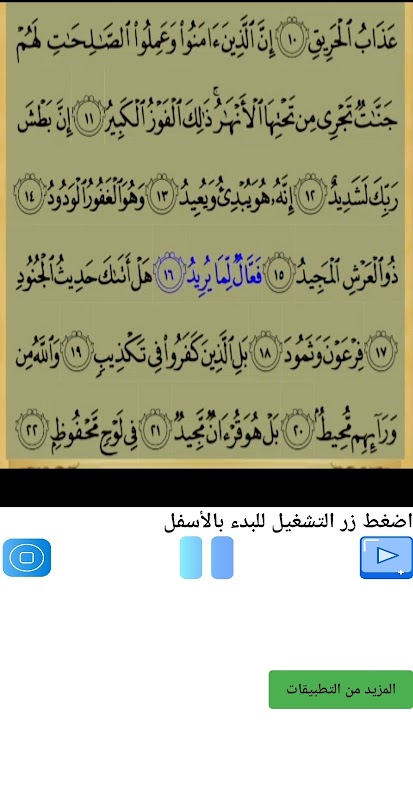 عَذَابُ ٱلْحَرِيقِ ١٠ إِنَّ ٱلَّذِينَ ءَامَنُوا۟ وَعَمِلُوا۟ ٱلصَّـٰلِحَـٰتِ لَهُمْ
جَنَّـٰتٌ تَجْرِى مِن تَحْتِهَا ٱلْأَنْهَـٰرُ ۚ ذَٰلِكَ ٱلْفَوْزُ ٱلْكَبِيرُ ١١ إِنَّ بَطْشَ
رَبِّكَ لَشَدِيدٌ ١٢ إِنَّهُۥ هُوَ يُبْدِئُ وَيُعِيدُ ١٣ وَهُوَ ٱلْغَفُورُ ٱلْوَدُودُ ١٤
ذُو ٱلْعَرْشِ ٱلْمَجِيدُ ١٥ فَعَّالٌ لِّمَا يُرِيدُ ١٦ هَلْ أَتَىٰكَ حَدِيثُ ٱلْجُنُودِ
١٧ فِرْعَوْنَ وَثَمُودَ ١٨ بَلِ ٱلَّذِينَ كَفَرُوا۟ فِى تَكْذِيبٍ ١٩ وَٱللَّهُ مِن
وَرَآئِهِم مُّحِيطٌۢ ٢٠ بَلْ هُوَ قُرْءَانٌ مَّجِيدٌ ٢١ فِى لَوْحٍ مَّحْفُوظٍۭ ٢٢
اضغط زر التشغيل للبدء بالأسفل
المزيد من التطبيقات